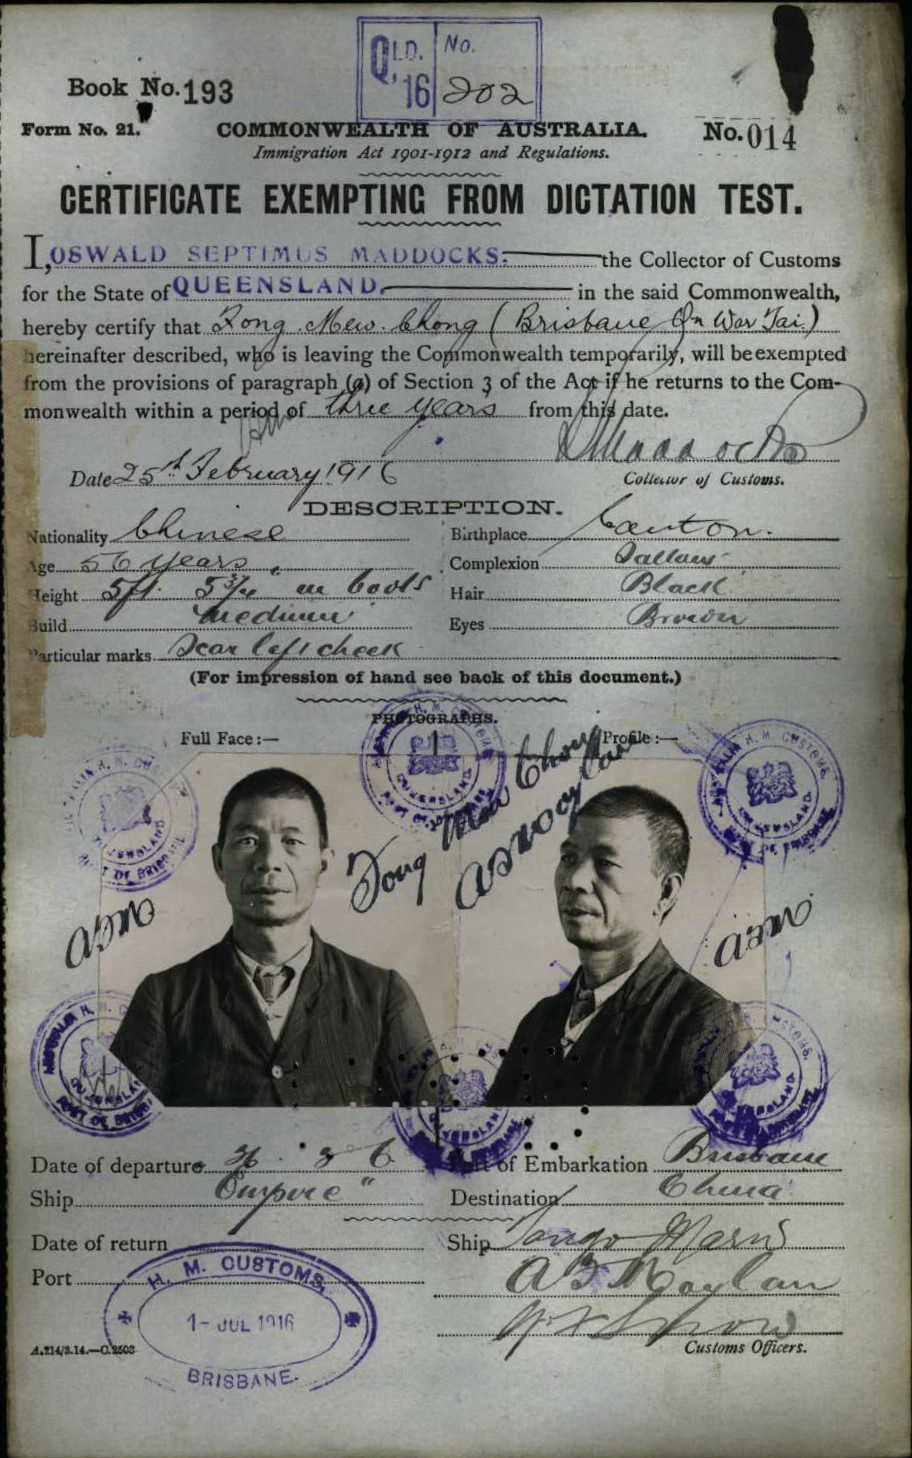 QLD. No.
16 202
Book No. 193
Form No. 21.
COMMONWEALTH OF AUSTRALIA.
No. 014
Immigration Act 1901-1912 and Regulations.
CERTIFICATE EXEMPTING FROM DICTATION TEST.
I, OSWALD SEPTIMUS MADDOCKS. the Collector of Customs
for the State of QUEENSLAND. in the said Commonwealth,
hereby certify that Fong Mew Chong (Brisbane On War Tai)
hereinafter described, who is leaving the Commonwealth temporarily, will be exempted
from the provisions of paragraph (a) of Section 3 of the Act if he returns to the Com-
monwealth within a period of three years from this date.
Maddocks
Date 25th February 1916
Collector of Customs.
DESCRIPTION.
Nationality Chinese Birthplace Canton.
Age 56 years Complexion Sallow
Height 5ft. 5 3/4" in boots Hair Black
Build medium Eyes Brown
Particular marks Scar left cheek
(For impression of hand see back of this document.)
PHOTOGRAPHS.
Full Face:— Profile:—
AUSTRALIA H. M. CUSTOMS.
QUEENSLAND.
PORT OF BRISBANE
Fong Mew Chong
Date of departure Port of Embarkation Brisbane
Ship Empire" Destination China
Date of return Ship
Port
A B Moylan
H. M. CUSTOMS,
1- JUL 1916
BRISBANE.
A.214/3.14.—C.2503
Customs Officers.